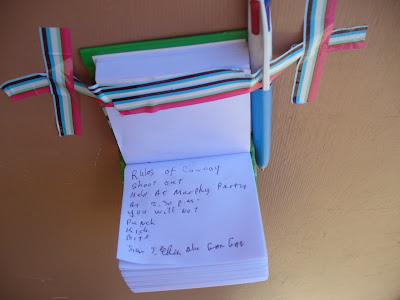 Rules of Conway
Shoot out
Held At Murphy Party
At 5.30 p.m.
You will not
Punch
Kick
Bite
Sign